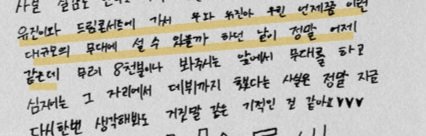 유진이와 드림콘서트에 가서 우와 유진아 우린 언제쯤 이런
대규모의 무대에 설 수 있을까 하던 날이 정말 어제
같은데 무려 8천분이나 봐주시는 앞에서 무대를 하고
심지어는 그 자리에서 데뷔까지 했다는 사실은 정말 지금
다시한번 생각해봐도 거짓말 같은 기적인 것 같아요♥♥♥